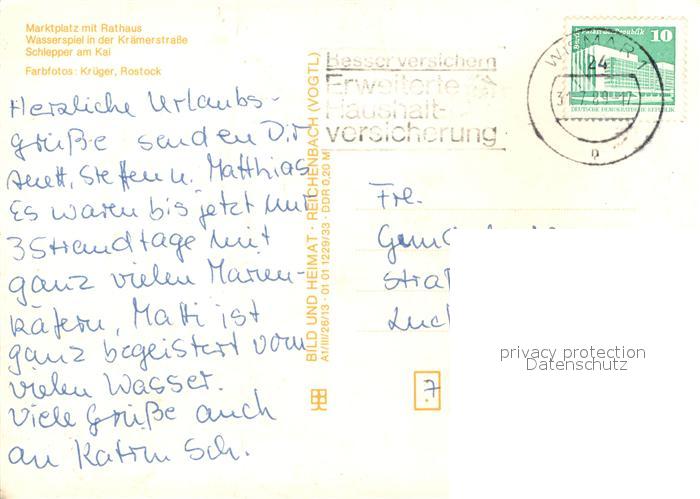 Marktplatz mit Rathaus
Wasserspiel in der Krämerstraße
Schlepper am Kai
Farbfotos: Krüger, Rostock
Herzliche Urlaubs-
grüße senden Dir
Anett, Steffen u. Matthias
Es waren bis jetzt nur
3 Strandtage mit
ganz vielen Marien-
käfern, Matti ist
ganz begeistert vom
vielen Wasser.
Viele Grüße auch
an Katrin Sch.
BILD UND HEIMAT · REICHENBACH (VOGTL)
A1/III/26/13 · 01 01 1229/33 · DDR 0,20 M
Besser versichern
Erweiterte
Haushalt-
versicherung
WISMAR 1
24
Palast der Republik
10
DEUTSCHE DEMOKRATISCHE REPUBLIK
Frl.
7
privacy protection
Datenschutz